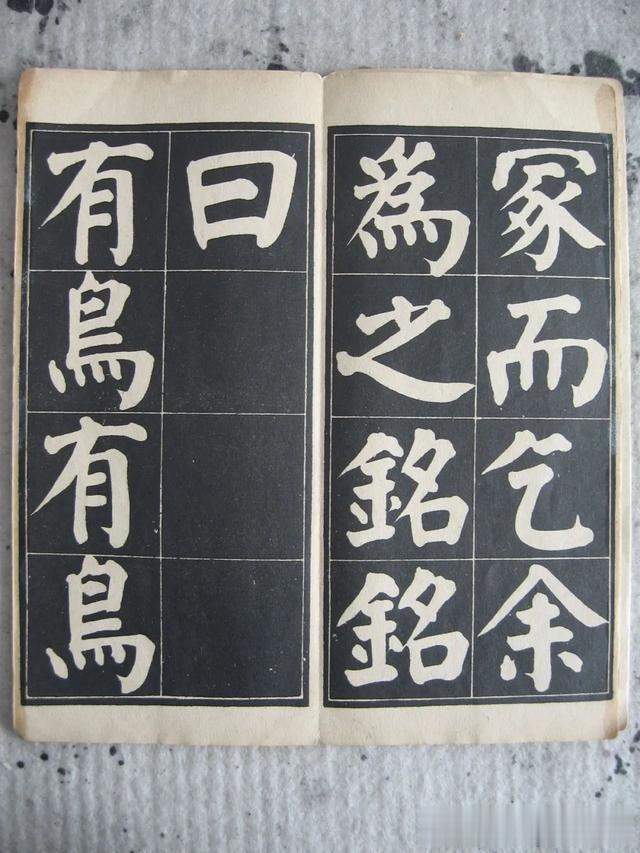 冢而乞余
為之銘銘
曰
有鳥有鳥